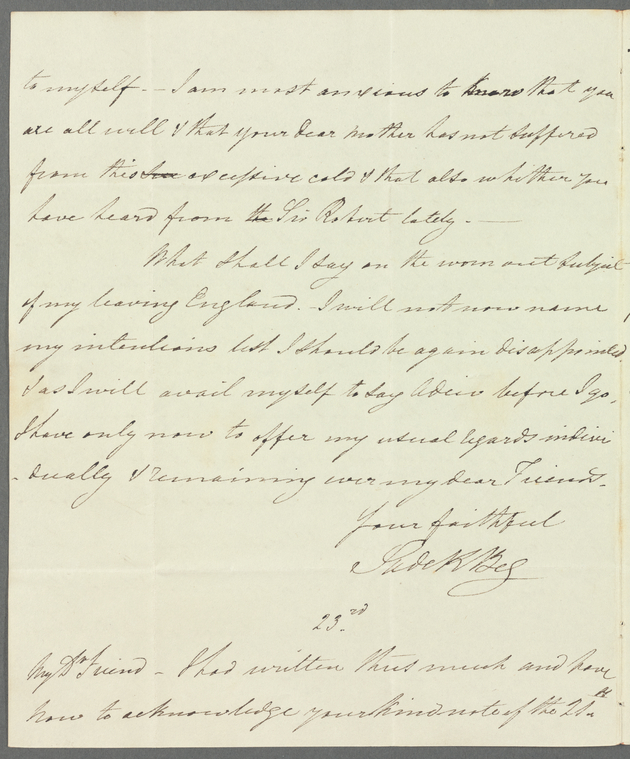 to myself. — I am most anxious to know that you
are all well & that your dear Mother has not suffered
from this excessive cold & that also whither you
have heard from the Sir Robert lately. —
What shall I say on the worn out subject
of my leaving England. I will not now name
my intentions lest I should be again disappointed
& as I will avail myself to say Adieu before I go,
I have only now to offer my usual regards indivi
-dually & remaining ever my dear Friends.
Your faithful
Sadek Beg
23.rd
My Dr Friend - I had written thus much and have
now to acknowledge your kind note of the 21.st